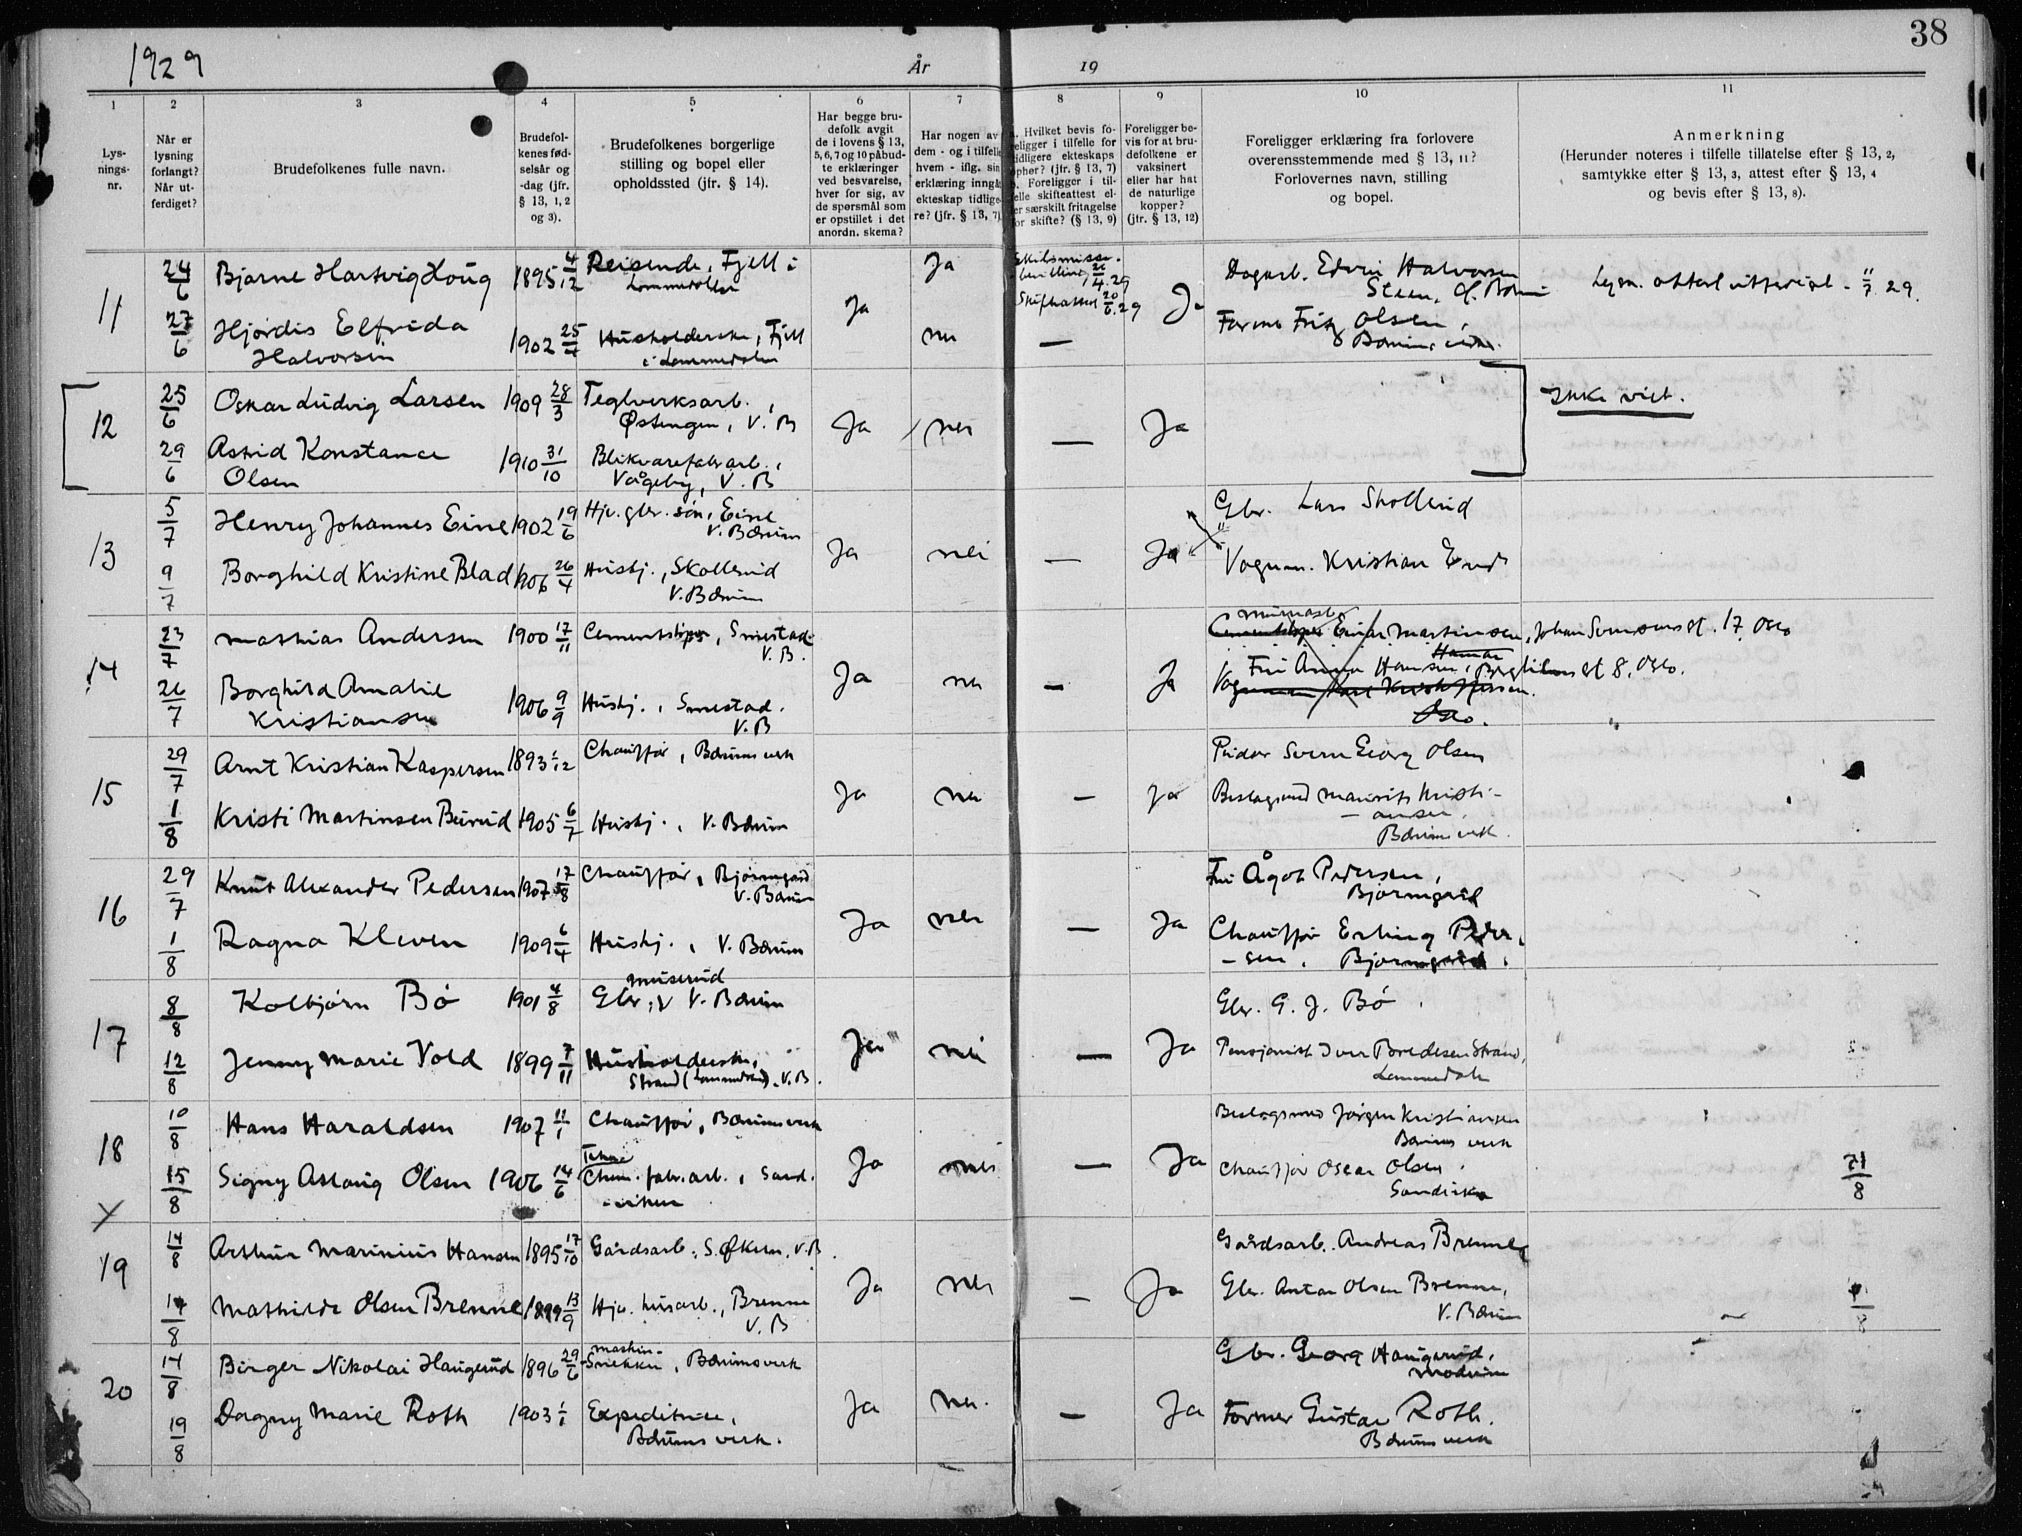 1929
År
19
38
1
2
3
4
5
6
7
8
9
10
11
Lys-
nings-
nr.
Når er
lysning
forlangt?
Når ut-
ferdiget?
Brudefolkenes fulle navn.
Brudefol-
kenes fød-
selsår og
-dag (jfr.
§ 13, 1, 2
og 3).
Brudefolkenes borgerlige
stilling og bopel eller
opholdssted (jfr. § 14).
Har begge bru-
defolk avgit
de i lovens § 13,
5, 6, 7 og 10 påbud-
te erklæringer
ved besvarelse,
hver for sig, av
de spørsmål som
er opstillet i det
anordn. skema?
Har nogen av
dem - og i tilfelle
hvem - iflg. sin
erklæring inngå
ekteskap tidlige-
re? (jfr. § 13, 7).
a. Hvilket bevis fo-
religger i tilfelle for
tidligere ekteskaps
ophør? (jfr. § 13, 7)
b. Foreligger i til-
felle skifteattest el-
ler særskilt fritagelse
for skifte? (§ 13, 9)
Foreligger be-
vis for at bru-
defolkene er
vaksinert
eller har hat
de naturlige
kopper?
(jfr. § 13, 12)
Foreligger erklæring fra forlovere
overensstemmende med § 13, 11?
Forlovernes navn, stilling
og bopel.
Anmerkning
(Herunder noteres i tilfelle tillatelse efter § 13, 2,
samtykke efter § 13, 3, attest efter § 13, 4
og bevis efter § 13, 8).
11
24/6 Bjarne Hartvig Houg 1895 4/12 Reisende, Fjell i
Lommedalen
Ja
Skilsmisse-
bevilling 26/4.29
Skifteattest 20/6.29
Ja
Ja
Dagarb. Edvin Halvorsen
Lysn. attest utferdiget 11/7 29.
27/6 Hjørdis Elfrida
Halvorsen
1902 25/4 Husholderske, Fjell
i Lommedalen
nei —
Former Fritz Olsen,
12
25/6 Oskar Ludvig Larsen 1909 28/3 Teglverksarb.,
Østengen, V. B
Ja nei — Ja
Ikke viet.
29/6 Astrid Konstance
Olsen
1910 31/10 Blikvarefabr arb.,
Vågeby, V. B
13
5/7 Henry Johannes Eine 1902 19/6 Hjv. gbr. søn, Eine
V. Bærum
Ja nei — Ja
Gbr. Lars Skollerud
9/7 Borghild Kristine Blad 1906 26/4 Hushj., Skollerud
V. Bærum
Vognm. Kristian
14
23/7 Mathias Andersen 1900 17/11 Cementstøper, Smestad
V. B.
Ja nei — Ja
Einar Martinsen, Johan Svensens gt. 17, Oslo
Hamar
Fru Anna Hansen, gt 8, Oslo.
26/7 Borghild Amalie
Kristiansen
1906 9/9 Hushj., Smestad.
V. B
Oslo.
15
29/7 Arnt Kristian Kaspersen 1893 1/12 Chauffør, Bærums verk
Ja nei — Ja
Svein Georg Olsen
1/8 Kristi Martinsen Beirud 1905 6/7 Hushj., V. Bærum
Beslagsmed Maurits Kristi-
-ansen,
Bærums verk.
16
29/7 Knut Alexander Pedersen 1907 17/8 Chauffør, Bjørumgård
V. Bærum
Ja nei — Ja
Fru Ågot Pedersen,
Bjørumgård
1/8 Ragna Kleven 1909 6/4 Hushj., V. Bærum
Chauffør Erling Peder-
-sen, Bjørumgård.
17
8/8 Kolbjørn Bø 1901 4/8 Gbr., V. Bærum
Muserud
Ja nei — Ja
Gbr. G. J. Bø
12/8 Jenny Marie Vold 1899 7/11 Husholderske,
Strand (Lommedalen). V. B.
Pensjonist Iver Bredesen Strand,
Lommedalen
18
10/8 Hans Haraldsen 1907 11/1 Chauffør, Bærums verk
Ja nei — Ja
Beslagsmed Jørgen Kristiansen
Bærums verk
15/8 Signy Aslaug Olsen 1906 14/6 Chem. fabr. arb., Sand-
-viken
Chauffør Oscar Olsen
Sandvika
21/8
19
14/8 Arthur Marinius Hansen 1895 17/10 Gårdsarb., S. Økern, V. B.
Ja nei — Ja
Gårdsarb. Andreas Brenne
17/8 Mathilde Olsen Brenne 1899 13/9 Hjv. husarb., Brenne
V. B
Gbr. Anton Olsen Brenne,
V. Bærum
20
14/8 Birger Nikolai Haugerud 1896 29/6 maskin-
Snekker, Bærums verk
Ja nei. — Ja
Gbr. Georg Haugerud,
Modum
19/8 Dagny Marie Roth 1903 1/1 Expeditrice,
Bærums verk.
Former Gustav Roth.
Bærums verk